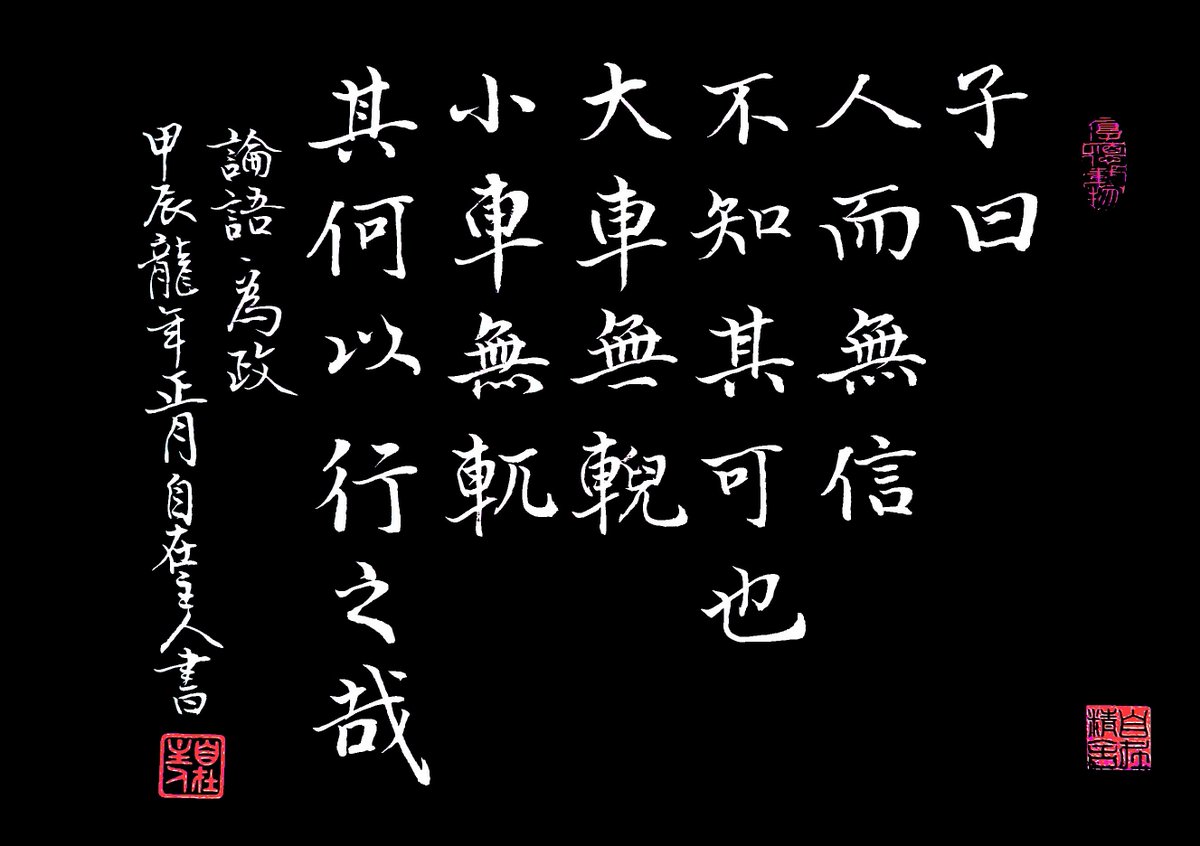 子曰
人而無信
不知其可也
大車無輗
小車無軏
其何以行之哉
論語·為政
甲辰龍年正月自在主人書
自在主人